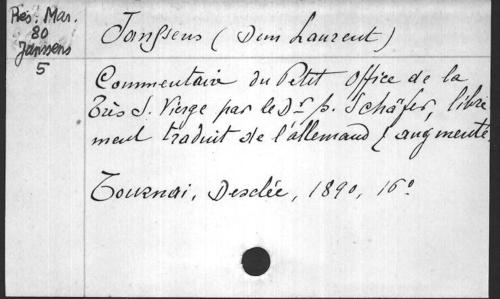 Rés. Mar.
80
Janssens
5
Janssens (Dom Laurent)
Commentaire du Petit Office de la
Très S. Vierge par le Dr b. Schäfer, libre
ment traduit de l'allemand & augmenté.
Tournai, Desclée, 1890, 16°